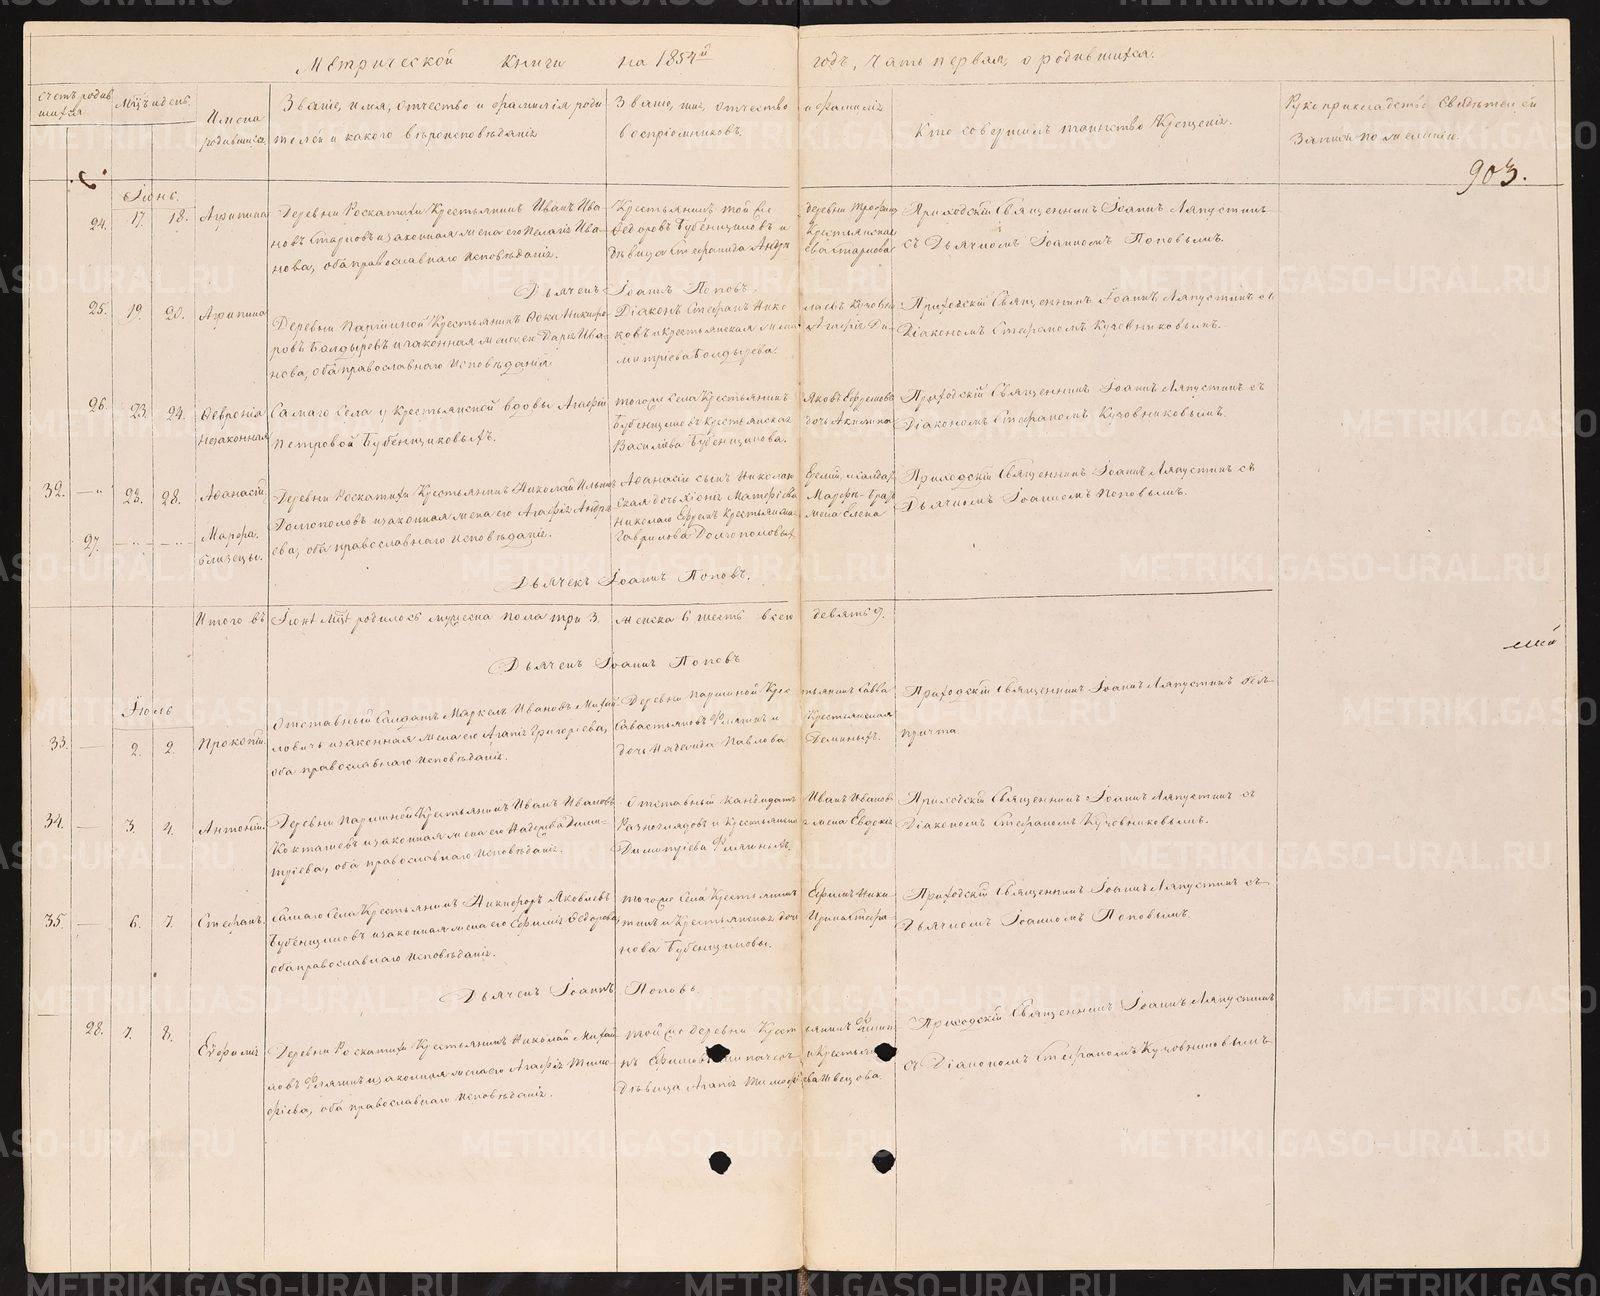 Метрической книги на 1854й годъ, Часть первая, о родившихся.
Счетъ родившихся.
Мѣсяцъ и день.
Имена родившихся.
Званіе, имя, отчество и фамилія роди
телей и какого вѣроисповѣданія
Званіе, имя, отчество и фамилія
воспріемниковъ.
Кто совершалъ таинство Крещенія.
Рукоприкладство свидѣтелей
записи по желанію.
903.
Іюнь.
24. 17. 18. Агрипина
Деревни Роскатихи Крестьянинъ Иванъ Ива-
новъ Старковъ и законная жена его Пелагія Ива-
нова, оба православнаго исповѣданія.
Крестьянинъ той же деревни Трофимъ
Ѳедоровъ Бубенщиковъ и Крестьянская
дѣвица Стефанида Андре
ева Старкова
Приходскій Священникъ Іоаннъ Ляпустинъ
съ Дьячкомъ Іоанномъ Поповымъ.
Дьячекъ Іоаннъ Поповъ.
25. 19. 20. Агрипина
Деревни Паршиной Крестьянинъ Ѳока Никифо-
ровъ Болдыревъ и законная жена его Дарья Ива-
нова, оба православнаго исповѣданія
Діаконъ Стефанъ Нико
лаевъ Кучевни
ковъ и крестьянская жена Агафія Ди-
митріева Болдырева.
Приходскій Священникъ Іоаннъ Ляпустинъ съ
Діакономъ Стефаномъ Кучевниковымъ.
26. 23. 24. Ѳевронія
незаконная
Самаго Села у крестьянской вдовы Агафіи
Петровой Бубенщиковыхъ.
тогоже Села Крестьянинъ Яковъ Ефремовъ
Бубенщиковъ и Крестьянская дочь Акилина
Василева Бубенщикова.
Приходскій Священникъ Іоаннъ Ляпустинъ съ
Діакономъ Стефаномъ Кучовниковымъ.
32. 23. 28. Аѳанасій
27. Марѳа.
близецы.
Деревни Роскатихи Крестьянинъ Николай Ильинъ
Долгополовъ и законная жена его Агафія Андре
ева, оба православнаго исповѣданія.
Аѳанасію сынъ Николая
Марѳы-
Николаю Ефремъ Крестьянская жена Елена
Гаврилова Долгополовы
Приходскій Священникъ Іоаннъ Ляпустинъ съ
Дьячкомъ Іоанномъ Поповымъ.
Дьячекъ Іоаннъ Поповъ.
Итого въ Іюнѣ мцѣ родилось мужеска пола три 3. женска 6 шесть всего девять 9.
Дьячекъ Іоаннъ Поповъ
Іюль
33. 2. 2. Прокопій.
Отставный Салдатъ Маркелъ Ивановъ Михай
ловичь и законная жена его Агапія Григорьева,
оба православнаго исповѣданія.
Деревни Паршиной Крес
тьянинъ Савва
Савастьяновъ Флягинъ и Крестьянская
дочь Надежда Павлова Деминыхъ.
Приходскій Священникъ Іоаннъ Ляпустинъ безъ
причта
34. 3. 4. Антоній.
Деревни Паршиной Крестьянинъ Иванъ Ивановъ
Кокташевъ и законная жена его Надежда Дими-
тріева, оба православнаго исповѣданія.
Отставный кандидатъ Иванъ Ивановъ
Разноглядовъ и Крестьянска
я жена Евдокія
Димитріева Флягиныхъ.
Приходскій Священникъ Іоаннъ Ляпустинъ съ
Діакономъ Стефаномъ Кучевниковымъ.
35. 6. 7. Стефанъ.
Самаго Села Крестьянинъ Никифоръ Яковлевъ
Бубенщиковъ и законная жена его Ефимія Ѳедорова,
оба православнаго исповѣданія.
тогоже Села Крестьянинъ Ефимъ Ники
тинъ и Крестьянская дочь Ирина Стефа-
нова Бубенщиковы.
Приходскій Священникъ Іоаннъ Ляпустинъ съ
Дьячкомъ Іоанномъ Поповымъ.
Дьячекъ Іоаннъ Поповъ
28. 7. 8. Евфимія
Деревни Роскатихи Крестьянинъ Николай Михай
ловъ Флягинъ и законная жена его Агафія Тимо-
фѣева, оба православнаго исповѣданія.
той же деревни Крест
дѣвица Агапія Тимоф
ѣева Швецова.
Приходскій Священникъ Іоаннъ Ляпустинъ
съ Діакономъ Стефаномъ Кучовниковымъ
METRIKI.GASO-URAL.RU